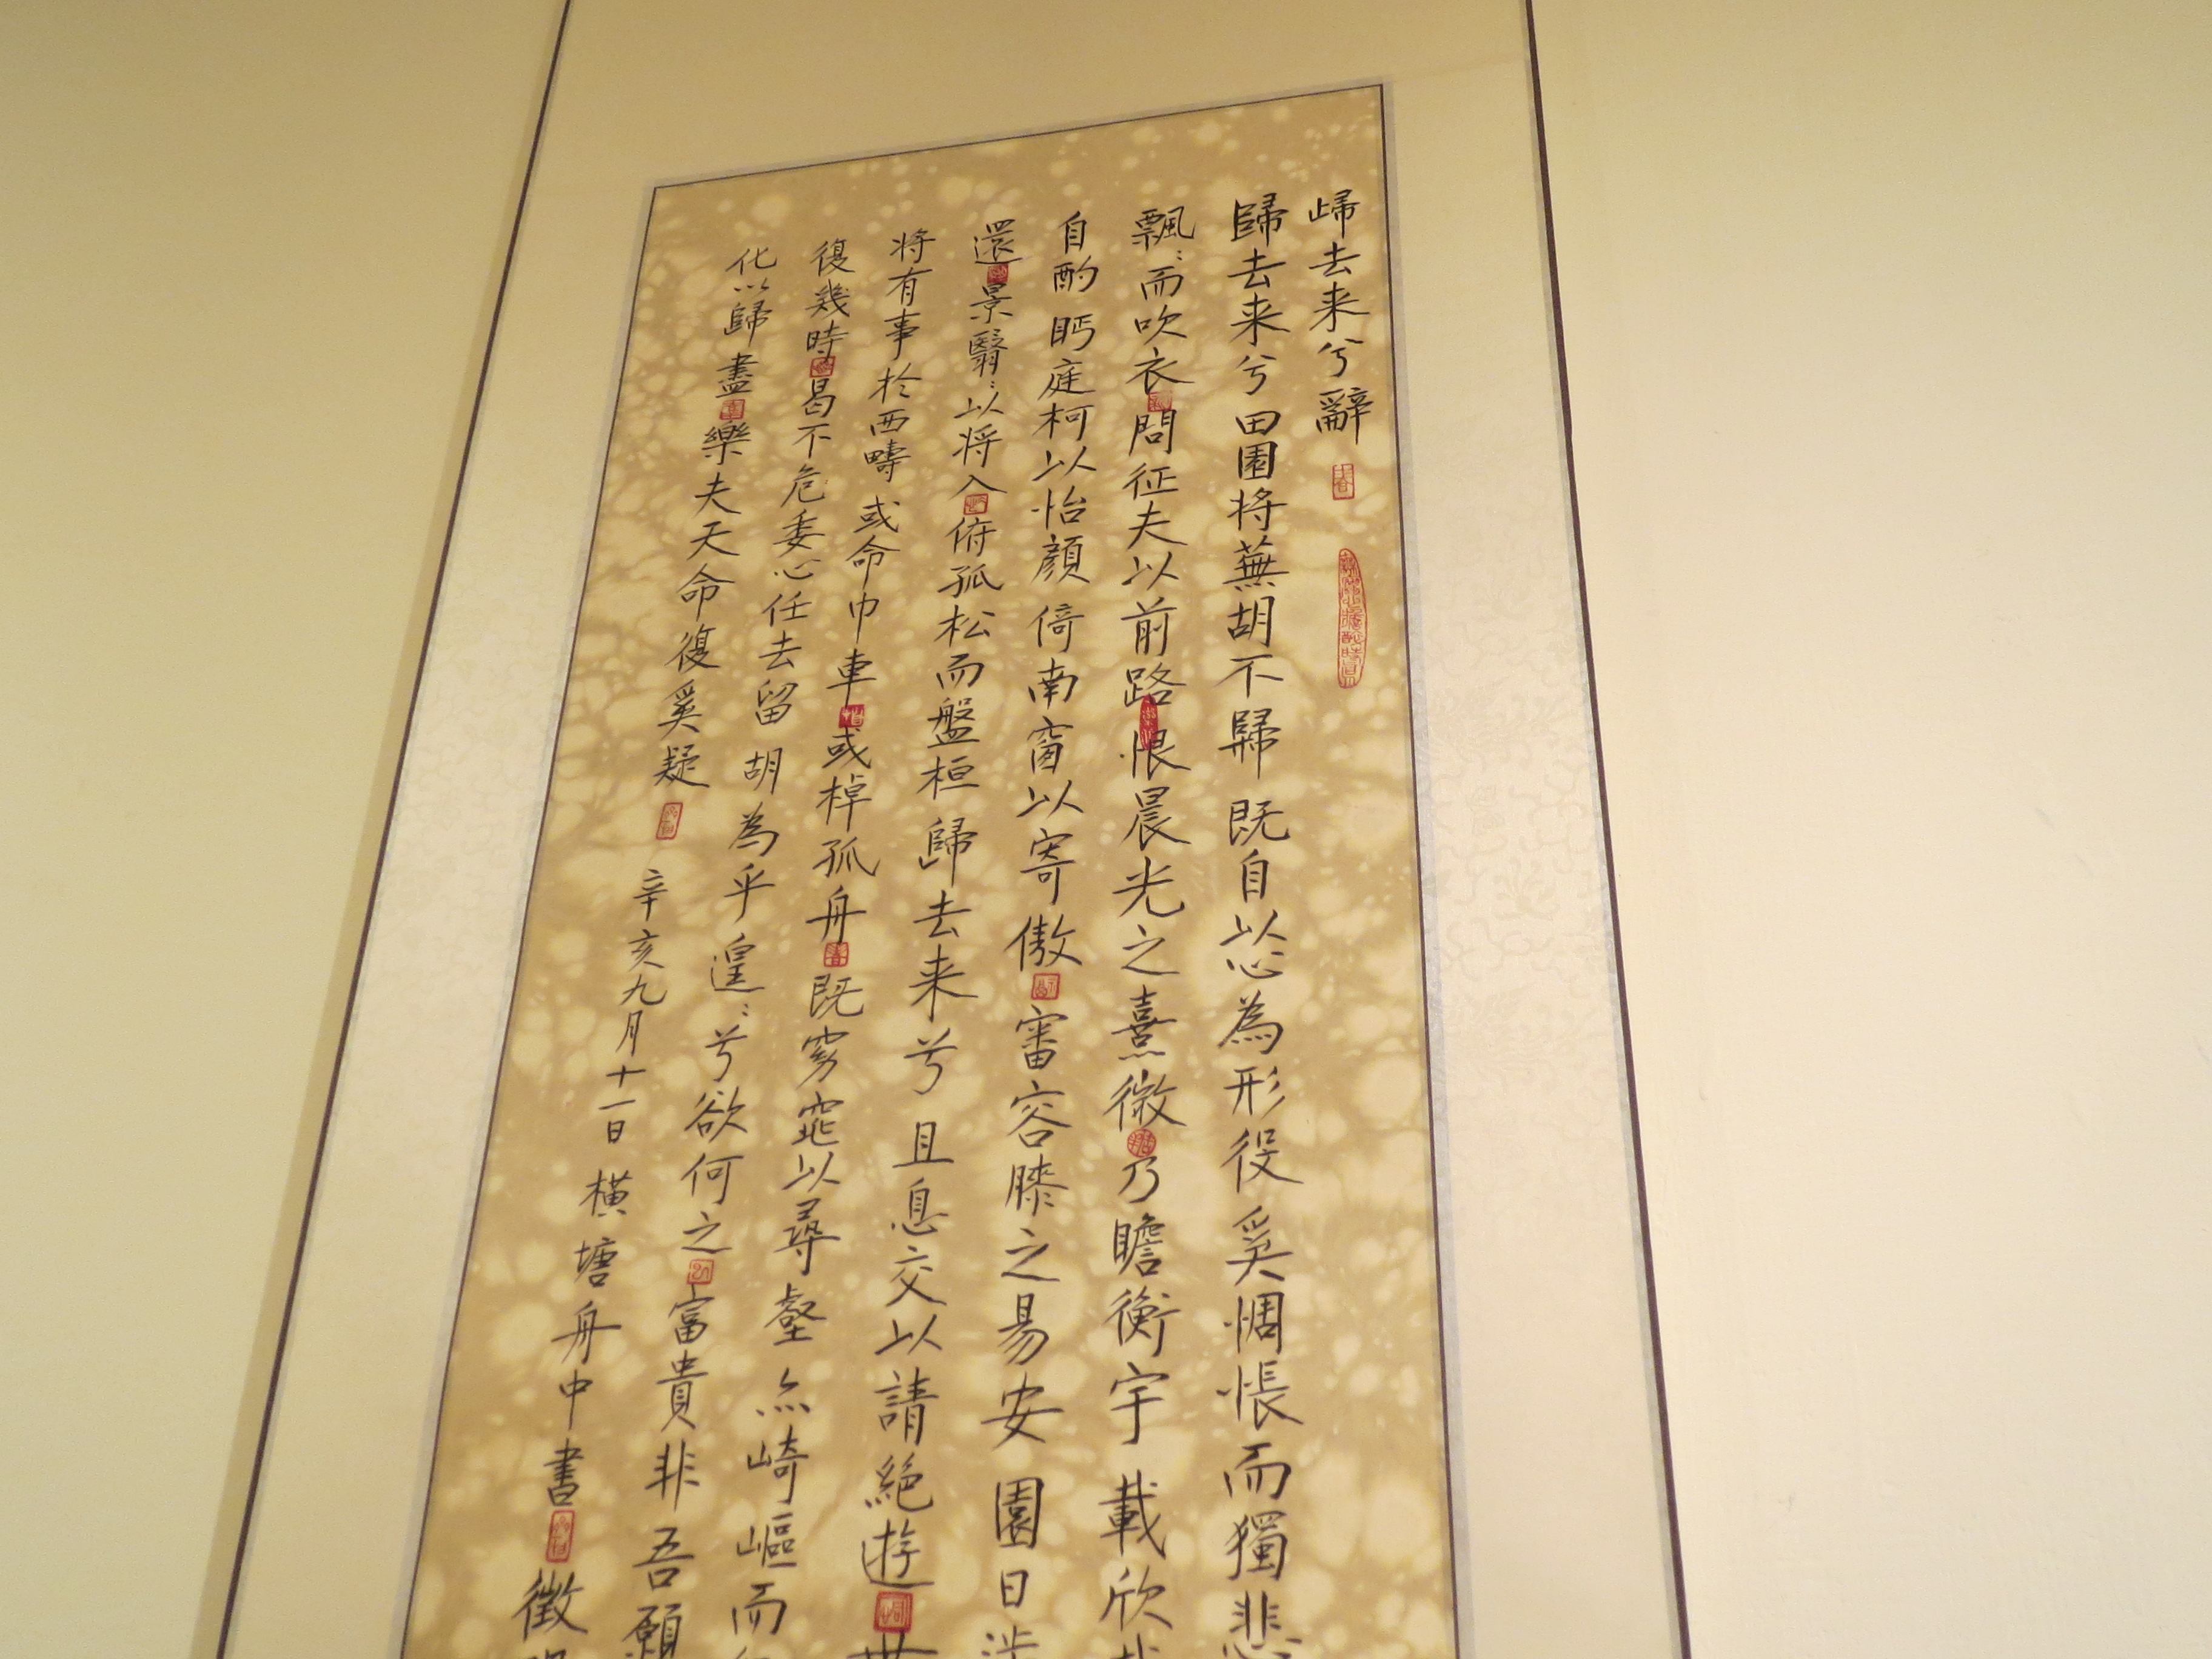 歸去来兮辭
歸去来兮田園将蕪胡不歸既自以心為形役奚惆悵而獨悲
飄〻而吹衣問征夫以前路恨晨光之熹微乃瞻衡宇載欣
自酌眄庭柯以怡顔倚南窗以寄傲審容膝之易安園日涉
還景翳〻以将入俯孤松而盤桓歸去来兮且息交以請絕遊世
将有事於西疇或命巾車或棹孤舟既窈窕以尋壑亦崎嶇而
復幾時曷不危委心任去留胡為乎遑〻兮欲何之富貴非吾願
化以歸盡樂夫天命復奚疑
辛亥九月十一日橫塘舟中書徵